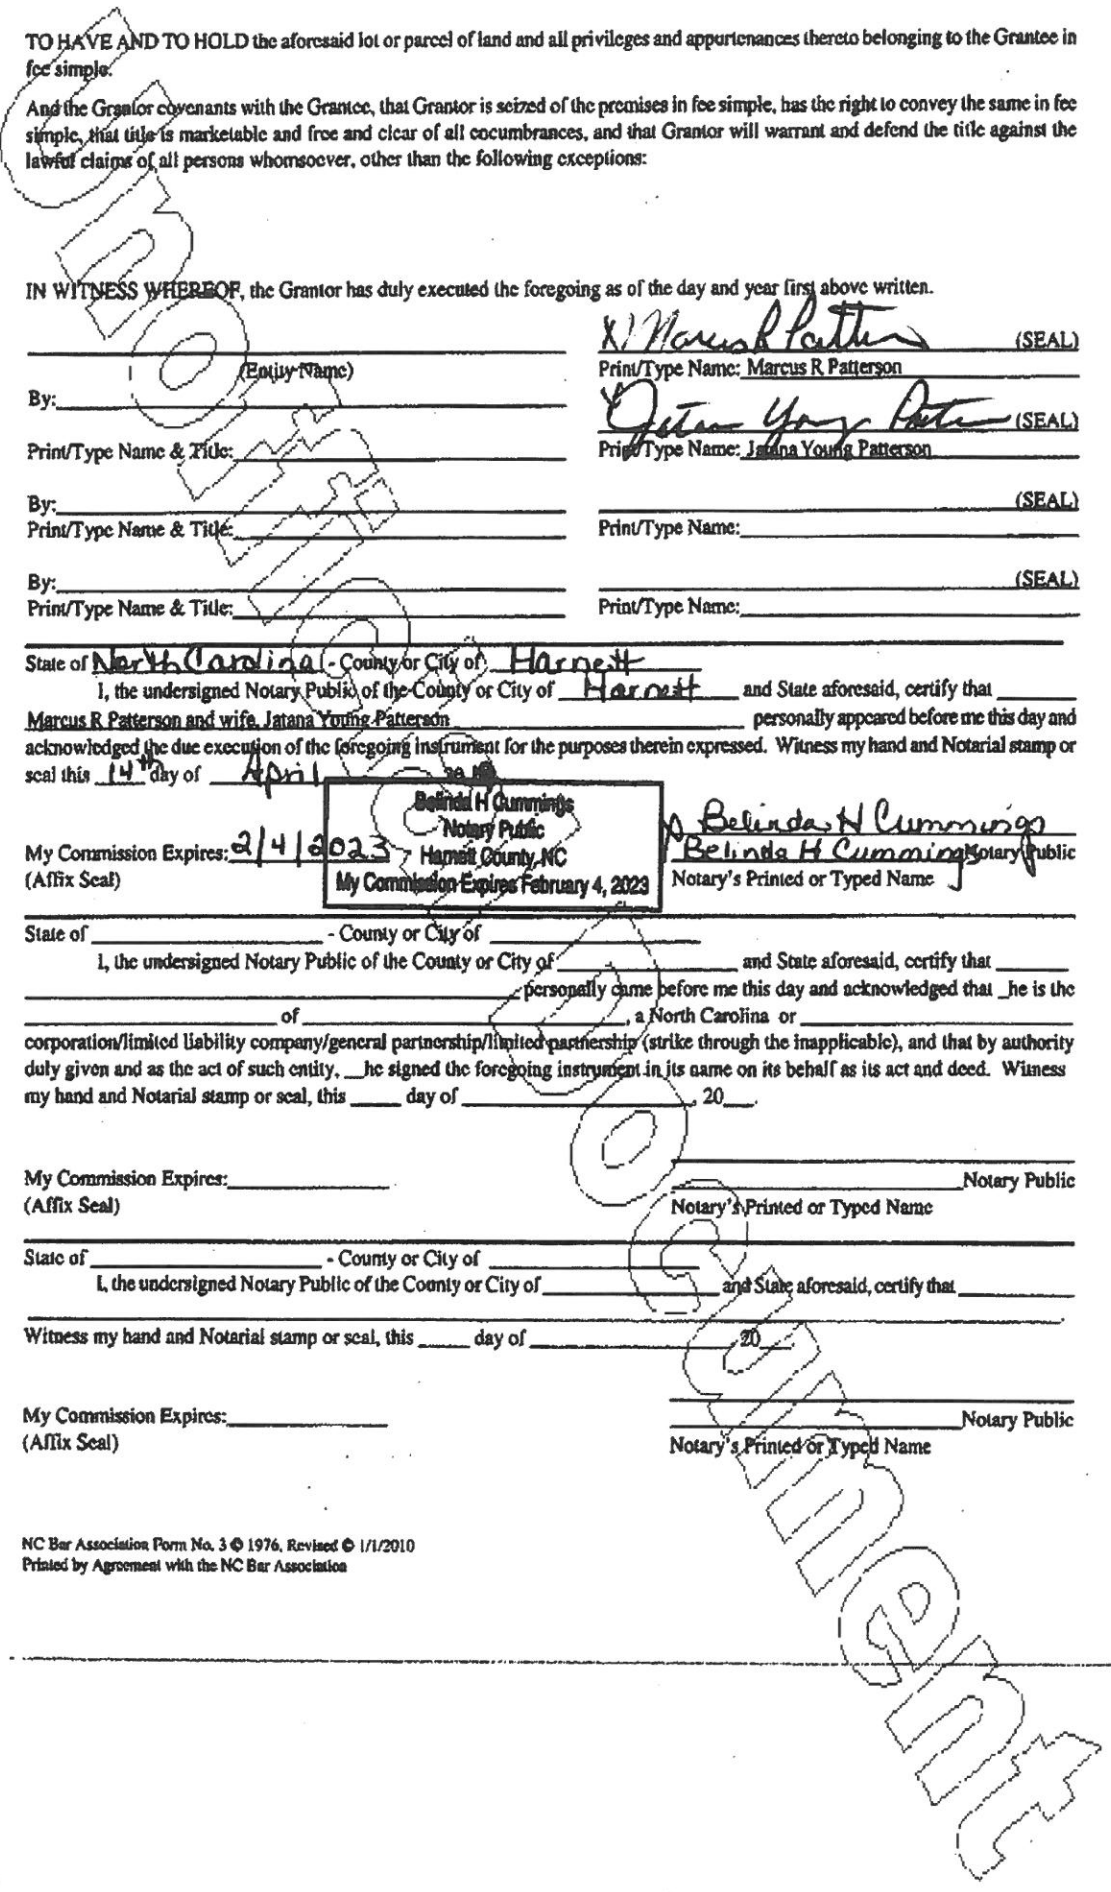 TO HAVE AND TO HOLD the aforesaid lot or parcel of land and all privileges and appurtenances thereto belonging to the Grantee in
fee simple.
And the Grantor covenants with the Grantee, that Grantor is seized of the premises in fee simple, has the right to convey the same in fee
simple, that title is marketable and free and clear of all encumbrances, and that Grantor will warrant and defend the title against the
lawful claims of all persons whomsoever, other than the following exceptions:
IN WITNESS WHEREOF, the Grantor has duly executed the foregoing as of the day and year first above written.
X Marcus R Patterson (SEAL)
(Entity Name) Print/Type Name: Marcus R Patterson
By: Jatana Young Patterson (SEAL)
Print/Type Name & Title: Print/Type Name: Jatana Young Patterson
By: (SEAL)
Print/Type Name & Title: Print/Type Name:
By: (SEAL)
Print/Type Name & Title: Print/Type Name:
State of North Carolina - County or City of Harnett
I, the undersigned Notary Public of the County or City of Harnett and State aforesaid, certify that
Marcus R Patterson and wife, Jatana Young Patterson personally appeared before me this day and
acknowledged the due execution of the foregoing instrument for the purposes therein expressed. Witness my hand and Notarial stamp or
seal this 14th day of April
Belinda H Cummings
Notary Public
Harnett County, NC
My Commission Expires February 4, 2023
Belinda H Cummings
My Commission Expires: 2/4/2023 Belinda H Cummings Notary Public
(Affix Seal) Notary's Printed or Typed Name
State of - County or City of
I, the undersigned Notary Public of the County or City of and State aforesaid, certify that
personally came before me this day and acknowledged that _he is the
of , a North Carolina or
corporation/limited liability company/general partnership/limited partnership (strike through the inapplicable), and that by authority
duly given and as the act of such entity, __he signed the foregoing instrument in its name on its behalf as its act and deed. Witness
my hand and Notarial stamp or seal, this day of , 20 .
My Commission Expires: Notary Public
(Affix Seal) Notary's Printed or Typed Name
State of - County or City of
I, the undersigned Notary Public of the County or City of and State aforesaid, certify that
.
Witness my hand and Notarial stamp or seal, this day of , 20 .
My Commission Expires: Notary Public
(Affix Seal) Notary's Printed or Typed Name
NC Bar Association Form No. 3 © 1976, Revised © 1/1/2010
Printed by Agreement with the NC Bar Association
Unofficial Document